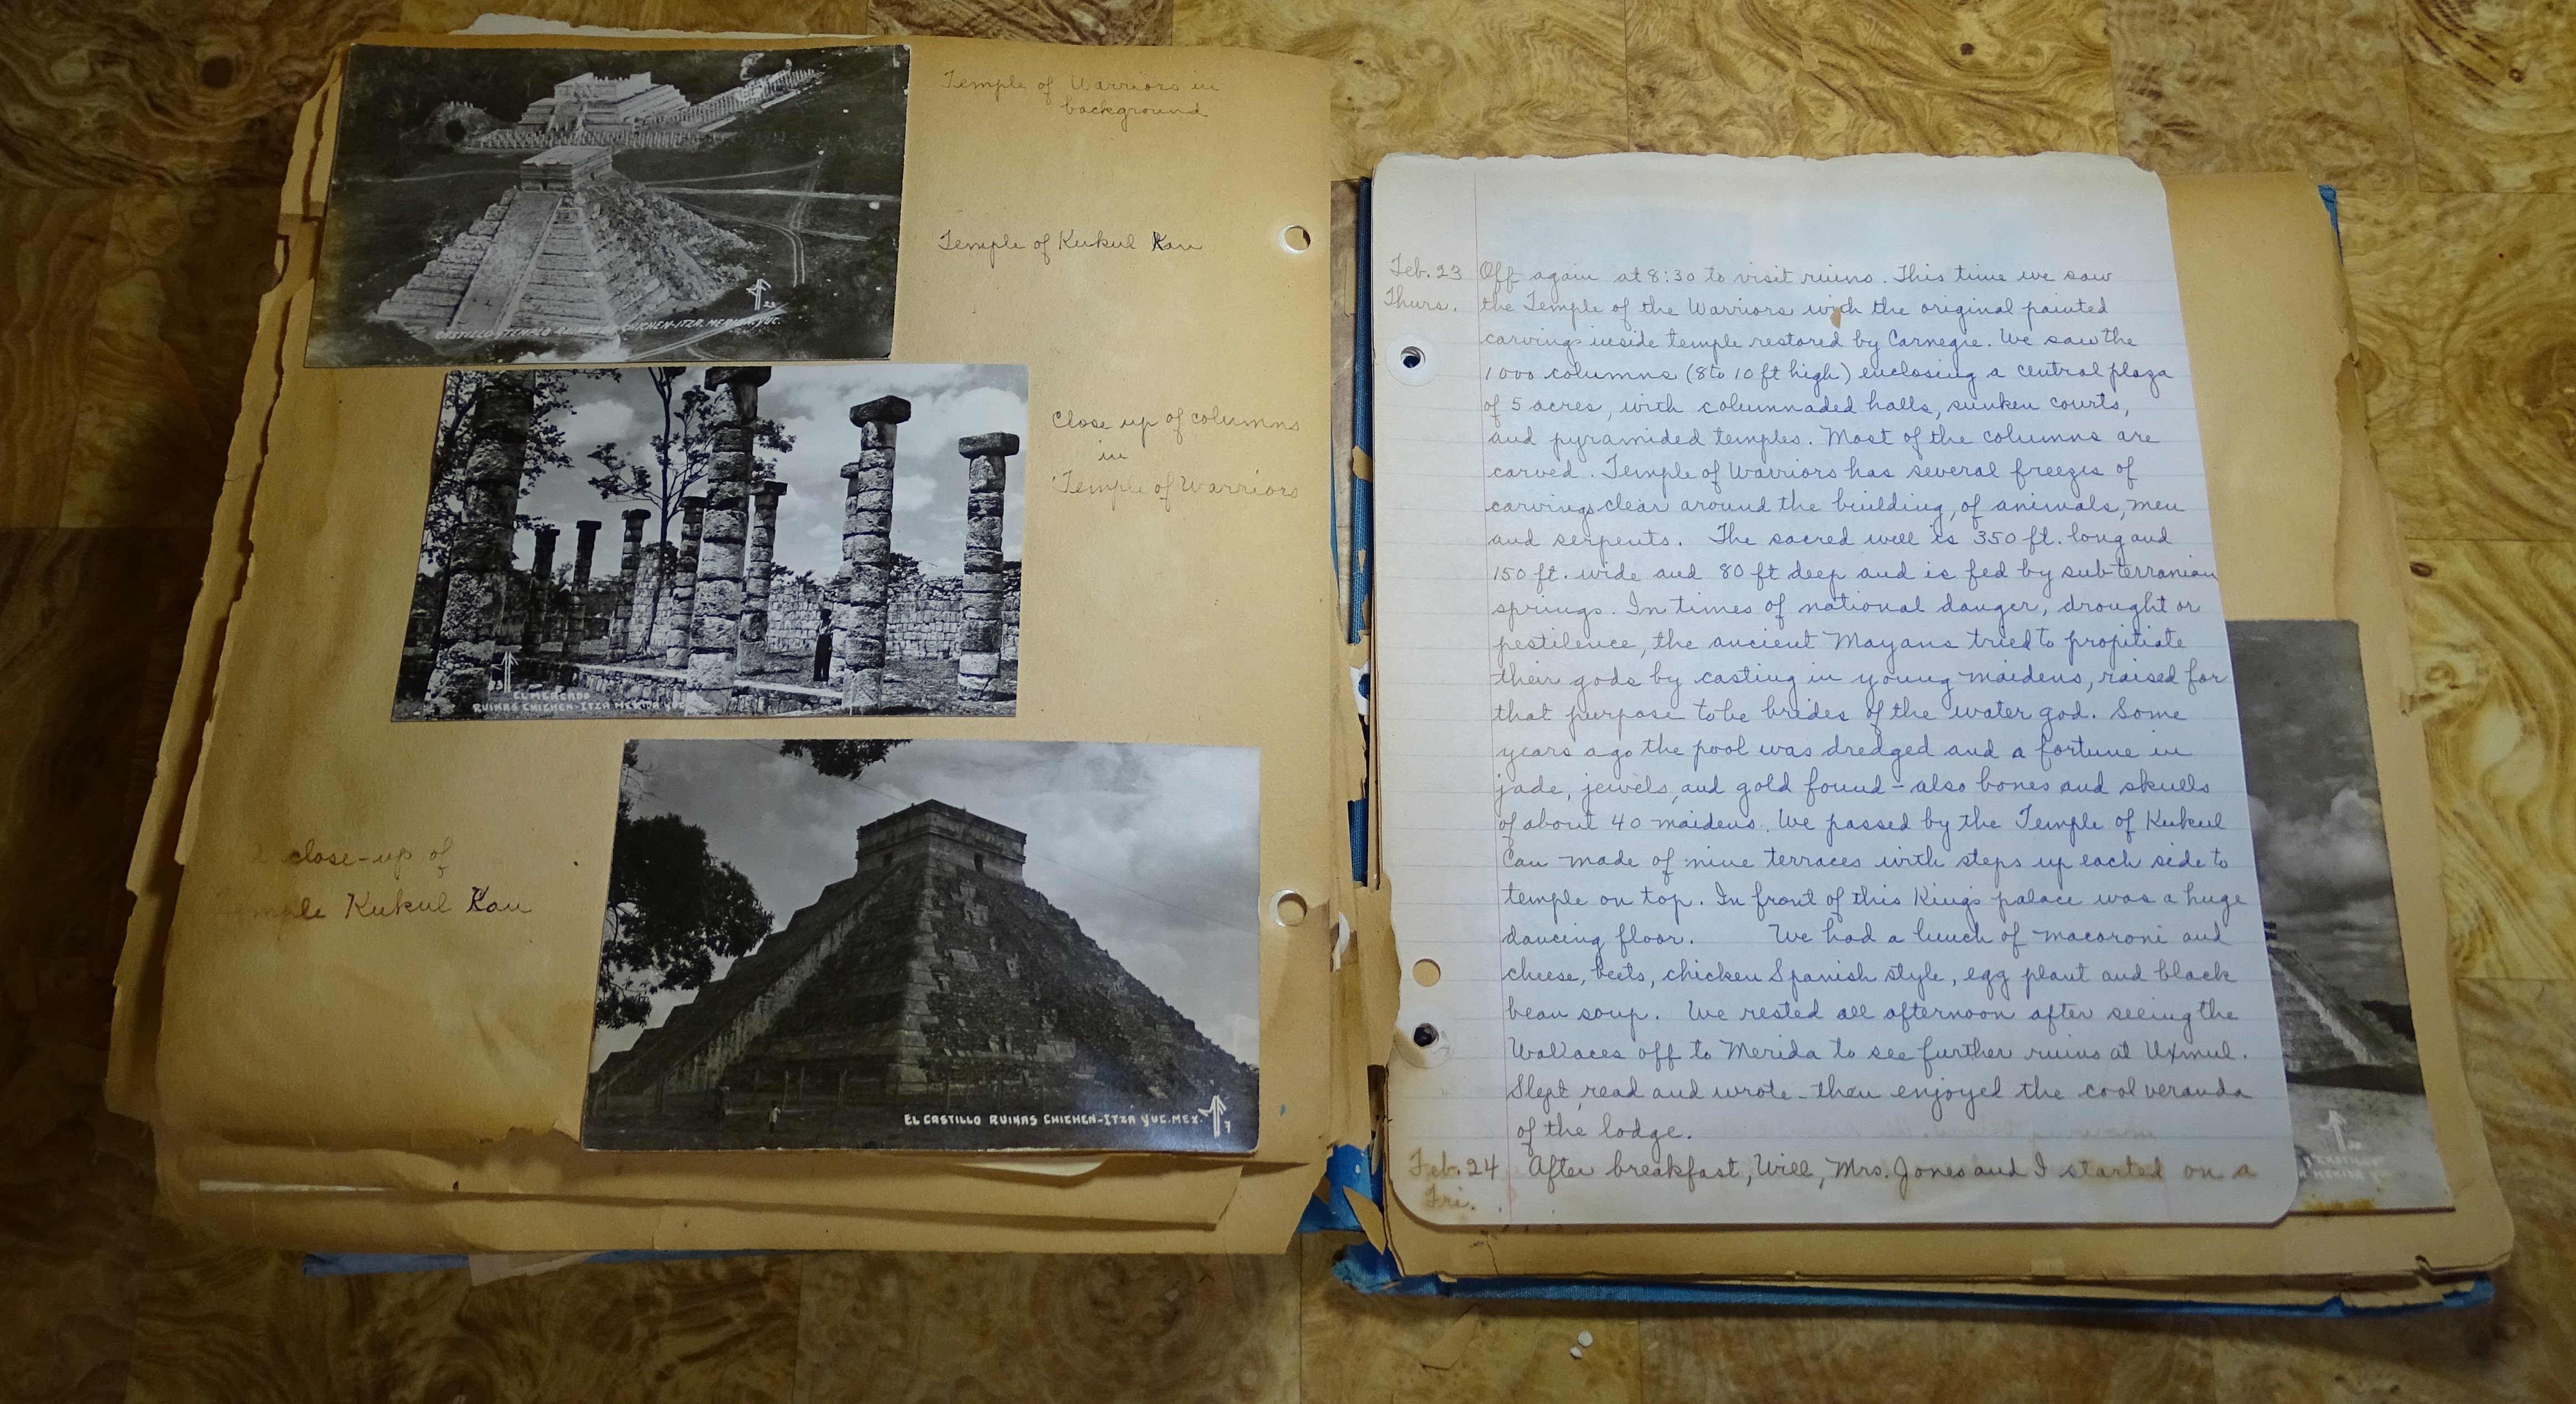 Temple of Warriors in
background
Temple of Kukul Kan
CASTILLO TEMPLO RUINAS CHICHEN-ITZA. MERIDA YUC.
23
Close up of columns
in
Temple of Warriors
23
EL MERCADO
RUINAS CHICHEN-ITZA MERIDA YUC
close-up of
Temple Kukul Kan
EL CASTILLO RUINAS CHICHEN-ITZÁ YUC. MEX.
7
Feb. 23 Off again at 8:30 to visit ruins. This time we saw
Thurs. the Temple of the Warriors with the original painted
carvings inside temple restored by Carnegie. We saw the
1000 columns (8 to 10 ft high) enclosing a central plaza
of 5 acres, with columnaded halls, sunken courts,
and pyramided temples. Most of the columns are
carved. Temple of Warriors has several freezes of
carvings clear around the building, of animals, men
and serpents. The sacred well is 350 ft. long and
150 ft. wide and 80 ft deep and is fed by subterranian
springs. In times of national danger, drought or
pestilence, the ancient Mayans tried to propitiate
their gods by casting in young maidens, raised for
that purpose to be brides of the water god. Some
years ago the pool was dredged and a fortune in
jade, jewels, and gold found - also bones and skulls
of about 40 maidens. We passed by the Temple of Kukul
Can made of nine terraces with steps up each side to
temple on top. In front of this Kings palace was a huge
dancing floor. We had a lunch of macaroni and
cheese, beets, chicken Spanish style, egg plant and black
bean soup. We rested all afternoon after seeing the
Wallaces off to Merida to see further ruins at Uxmul.
Slept, read and wrote - then enjoyed the cool veranda
of the lodge.
Feb. 24 After breakfast, Will, Mrs. Jones and I started on a
Fri.